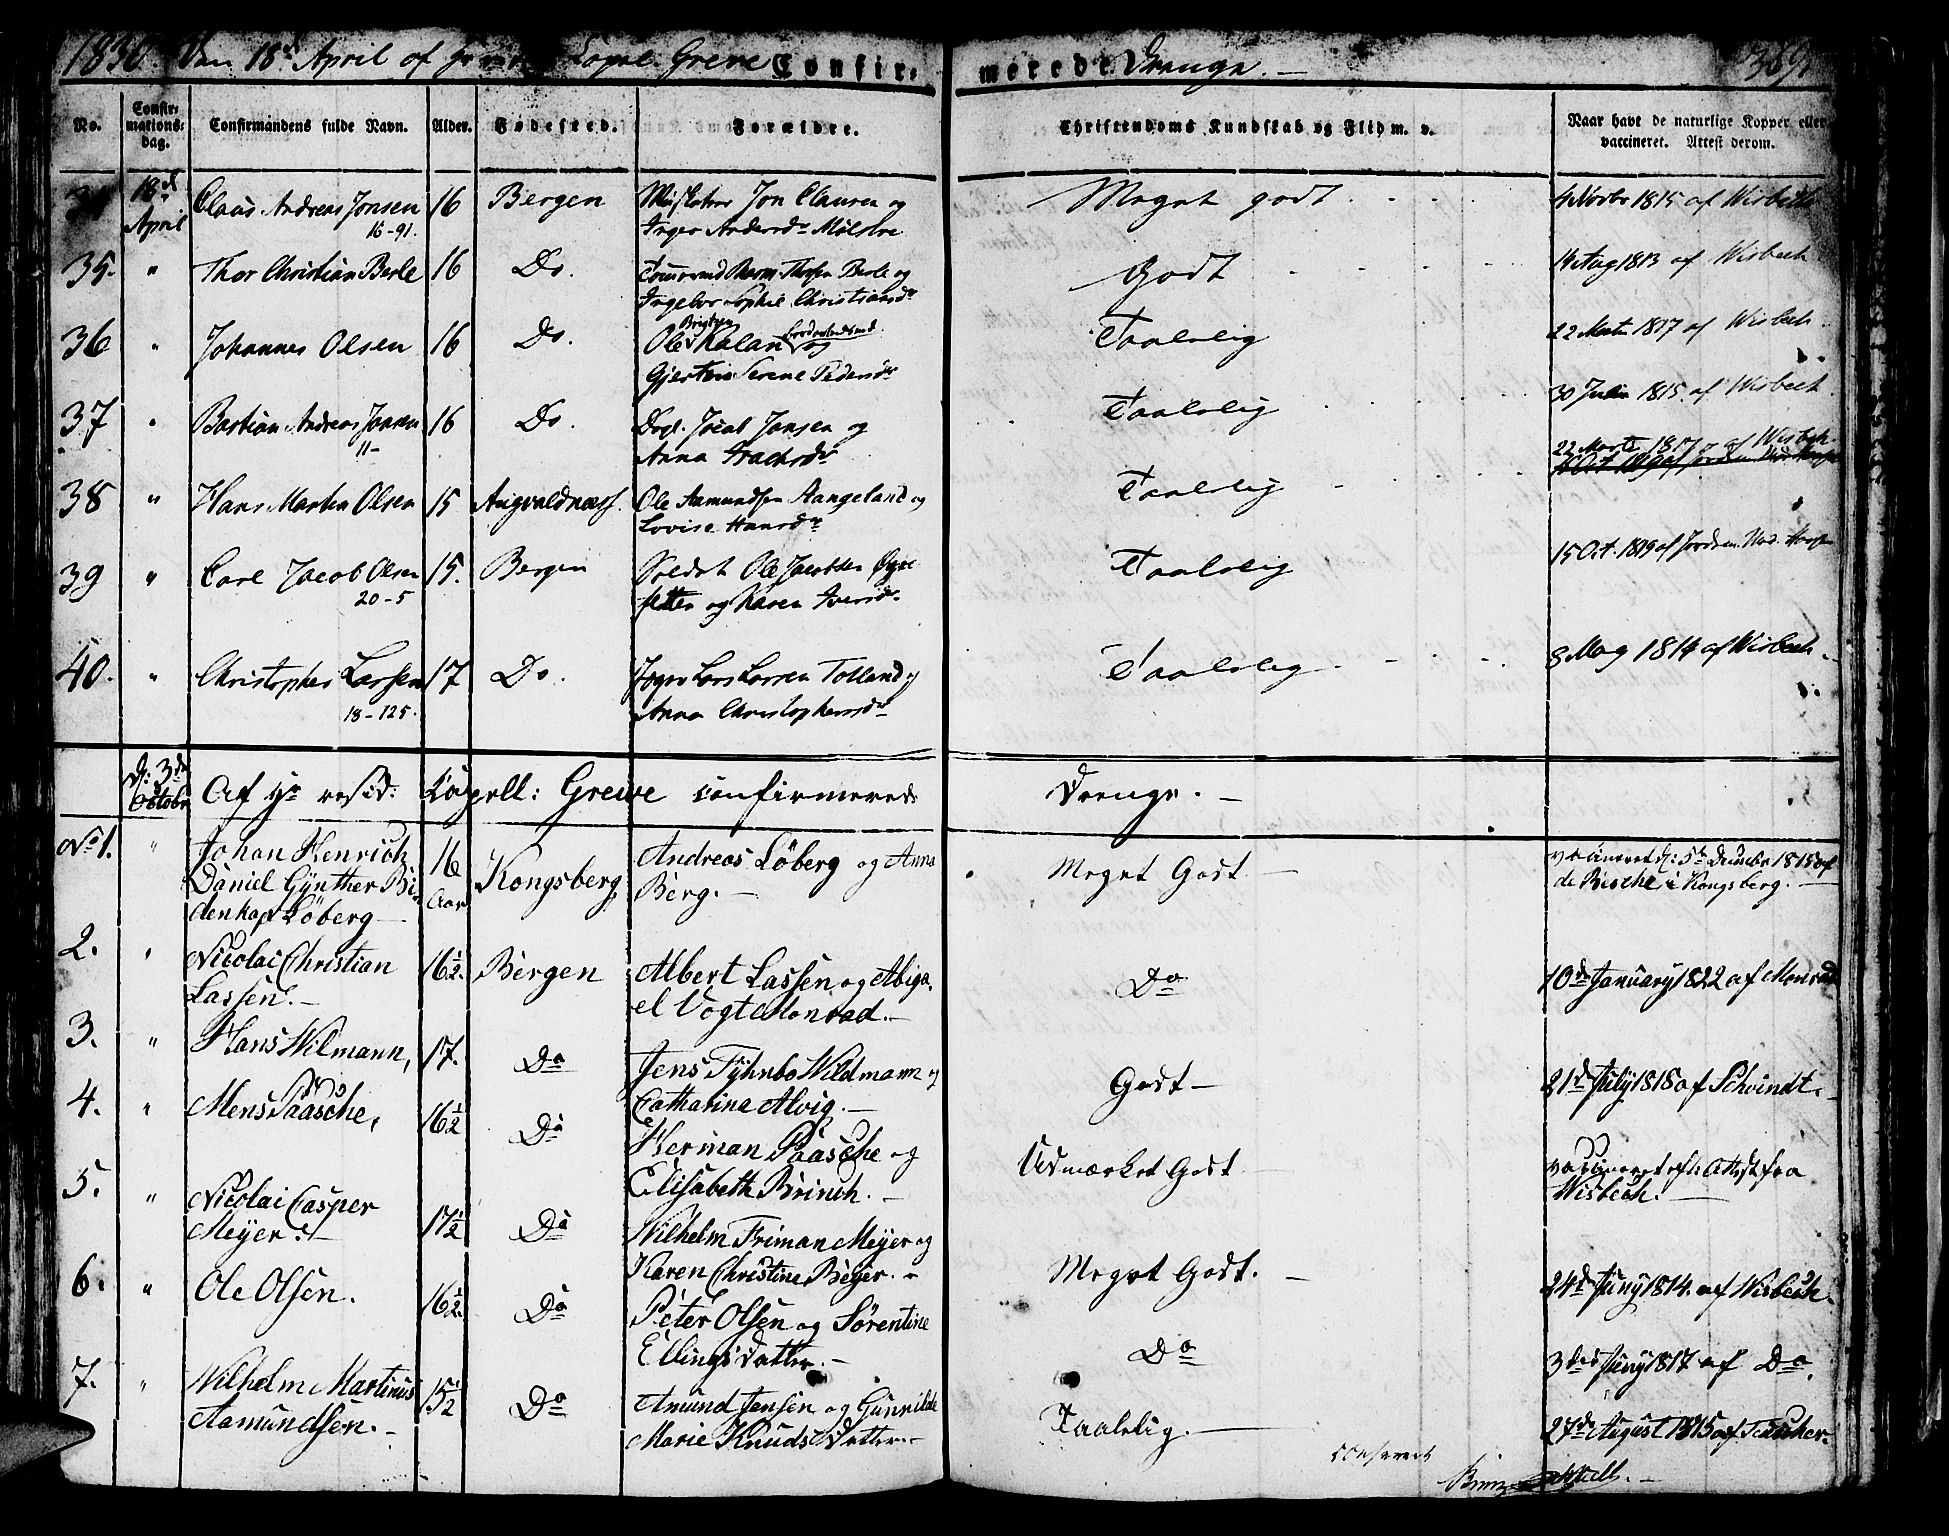 1830. Den 18de April af Capel. Greve Confir-
merede Drenge. —
369
No.
Confir-
mations-
dag.
Confirmandens fulde Navn.
Alder.
Fødested.
Forældre.
Christendoms Kundskab og Flid m. v.
Naar havt de naturlige Kopper eller
vaccineret. Attest derom.
18de
April
Claus Andreas Jonsen 16 Bergen Jon Clausen og
16-91. Inger Andersdr Mølstre
Meget godt
4 Novbr 1815 af Wisbech
35. " Thor Christian Berle 16 Do. Thorsen Berle og
Ingebor Sophie Christiansdr
Godt
14 Aug 1813 af Wisbech
36 " Johannes Olsen 16 Do. Ole Kalan og
Brigtsen
Gjertrui Serene Pedersdr
Taalelig
22 Marts 1817 af Wisbech.
37 " Bastian Andreas Jansen 16 Do. Jacob Jansen og
11-
Anna
Taalelig
30 Juni 1815. af Wisbech.
38 " Hans Martin Olsen 15 Augvaldnæss. Ole Aamundsen Aangeland og
Lovise Hansdr
Taalelig
22 Marts 1817 af Wisbech.
39 " Carl Jacob Olsen 15. Bergen Soldat Ole Jacobsen
20-5
og Karen Iversdr
Taalelig
15 Oct. 1819 af
40. " Christopher Larsen 17 Do. Lars Larsen Totland og
18-125.
Anna Christophersdr
Taalelig
8 May 1814 af Wisbech.
d: 3de
October
Af Hr resid: Capell: Greve confirmerede
Drenge. —
No 1. " Johan Henrich
Daniel Gynther Bi-
denkap Löberg —
16
Aar
Kongsberg
Andreas Löberg og Anna
Berg. —
Meget Godt —
vaccineret d: 5te December 1815 af
de Besche i Kongsberg. —
2. " Nicolai Christian
Lassen. —
16½. Bergen
Albert Lassen og Abiga-
el Vogt Monrad. —
Do
10de January 1822 af Monrad
3. " Hans Wilmann, 17. Do
Jens Tyhnbo Wildmann og
Catharina Alvig. —
Godt —
21de July 1818 af Schvindt. —
4. " Mens Paasche, 16½ Do
Herman Paasche og
Elisabeth Brinch. —
Udmærket Godt
vaccineret eft: Attest fra
Wisbech. —
5. " Nicolai Casper
Meyer. —
17½ Do
Wilhelm Friman Meyer og
Karen Christine Beyer. —
Meget Godt. —
24de Juny 1814. af Wisbech.
6. " Ole Olsen. 16½. Do
Peter Olsen og Sørentine
Ellings Datter. —
Do
3die Juny 1817 af Do.
7. " Wilhelm Martinus
Aamundsen. —
15½ Do
Amund Jensen og Gunnilde
Marie Knuds Datter. —
Taalelig. —
27de August 1815 af Teuscher.